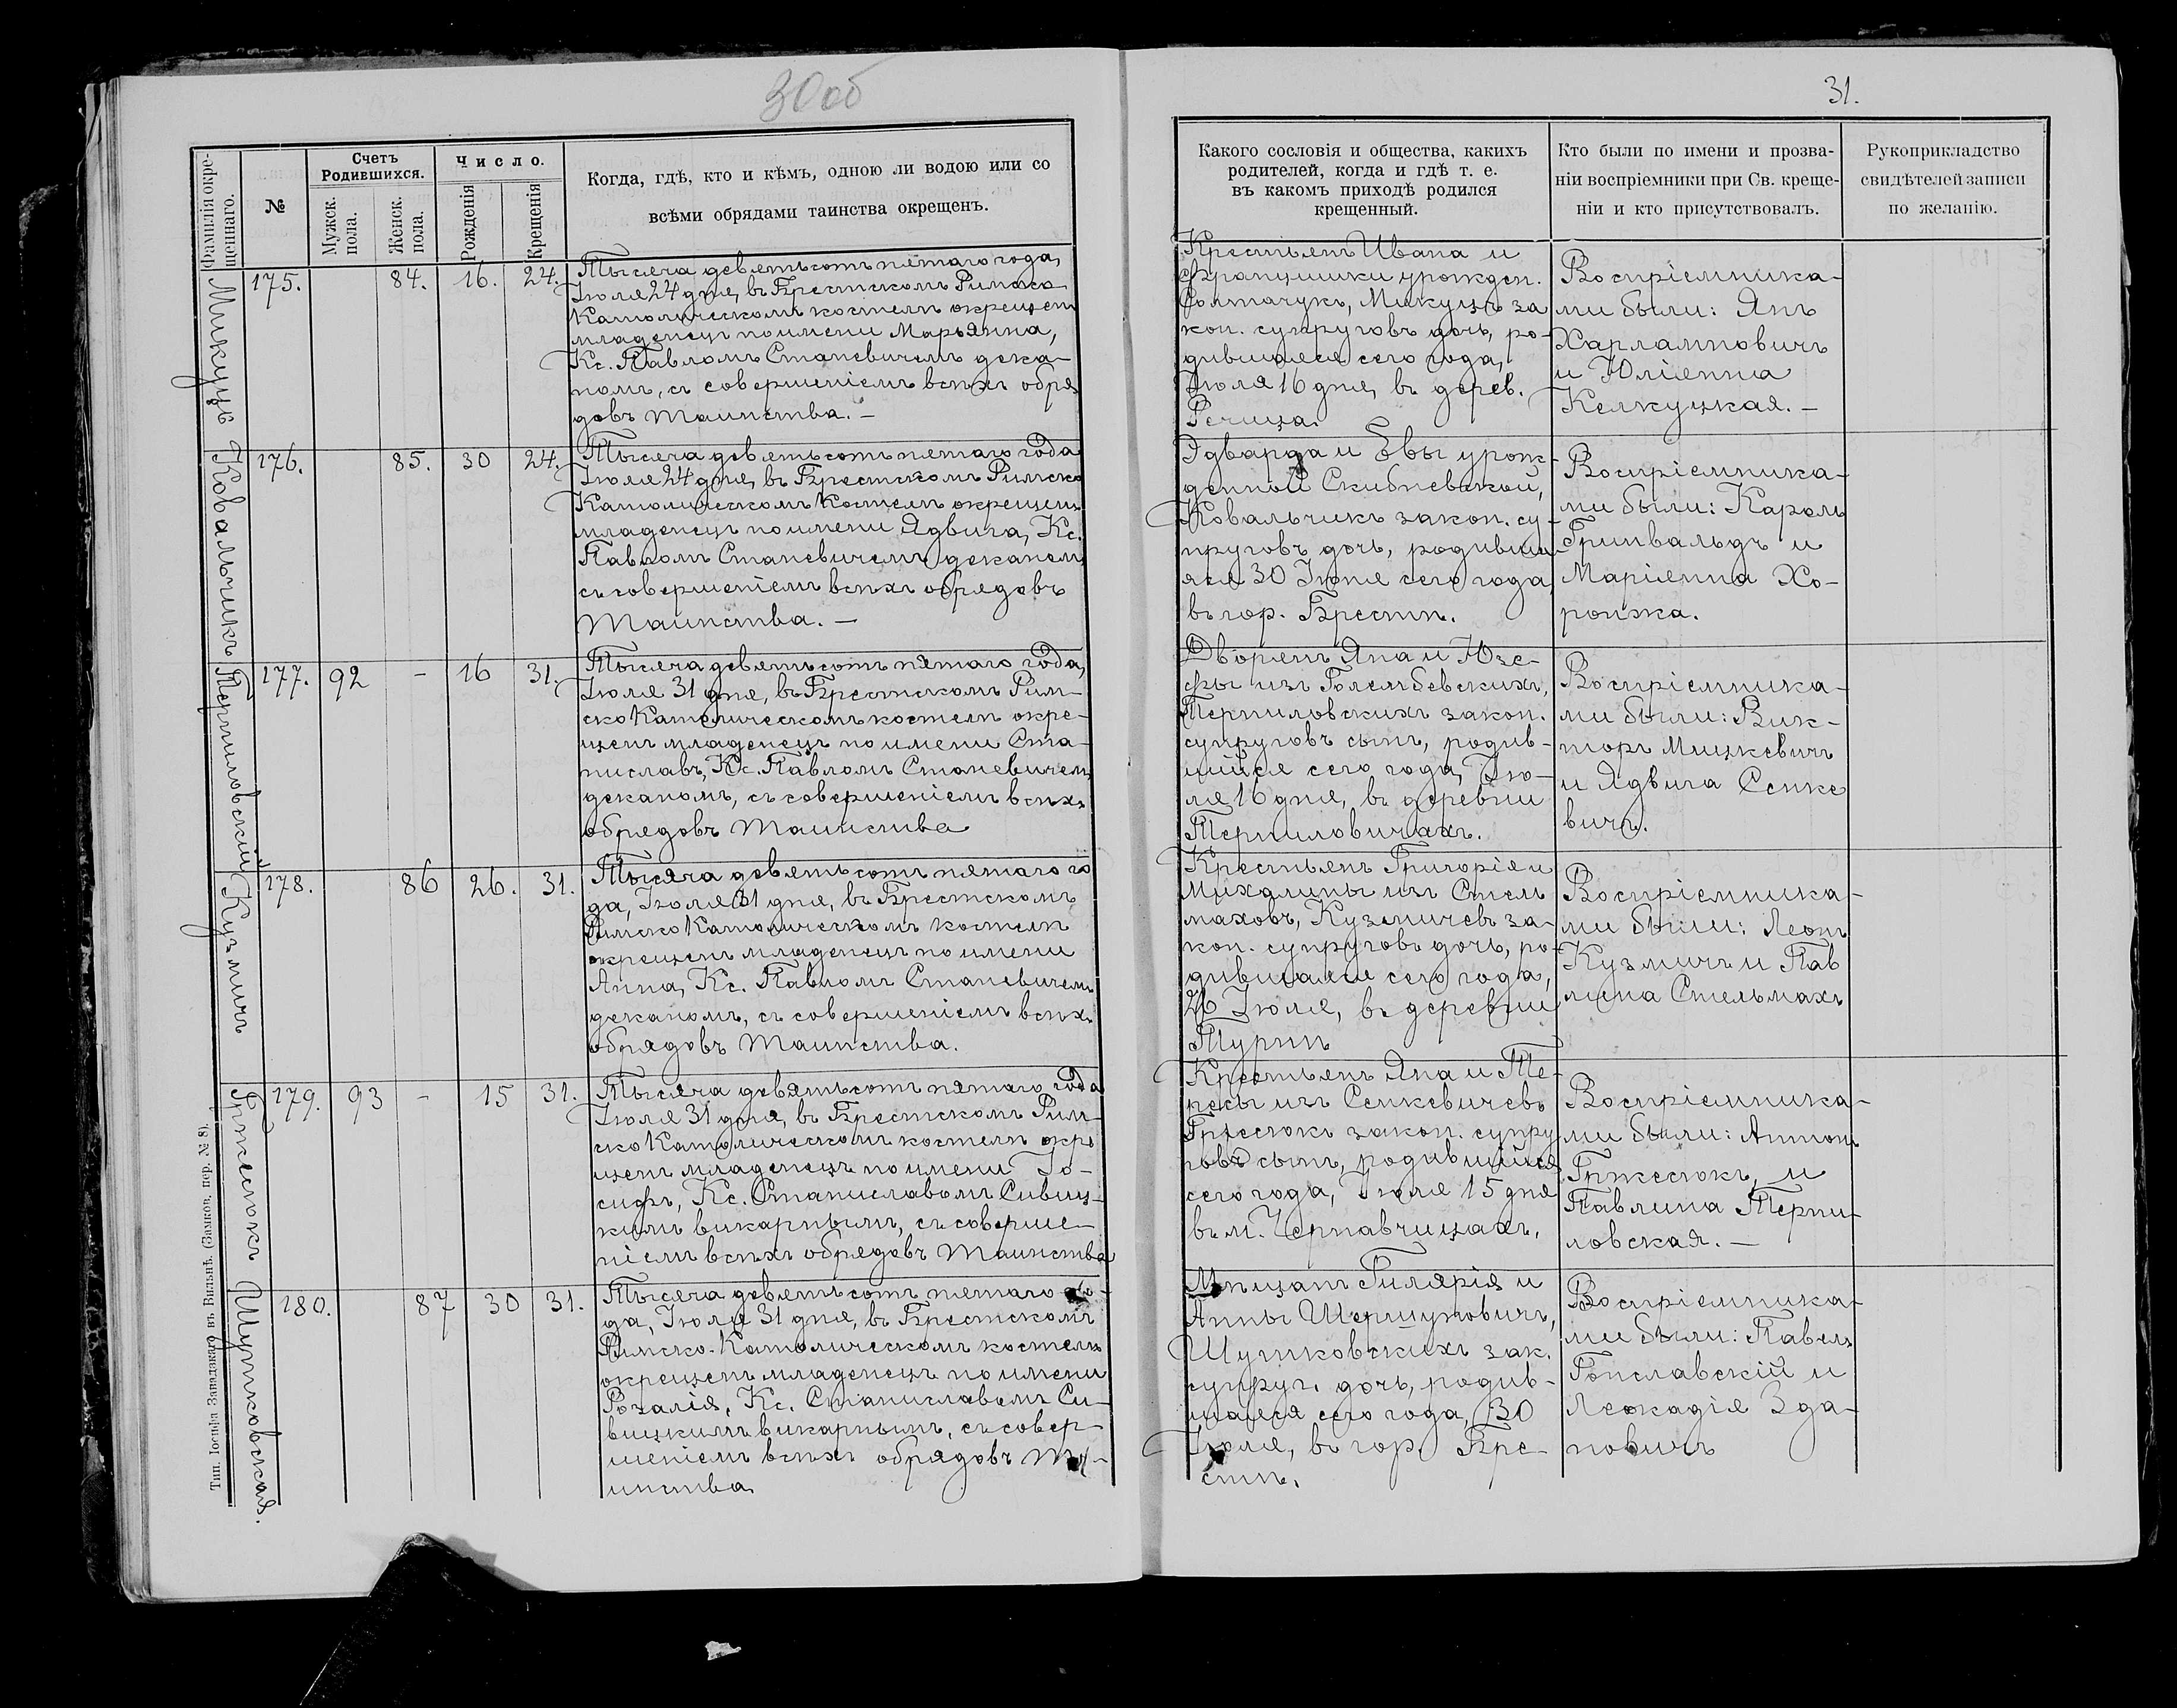 30об
31.
Фамилія окре-
щеннаго.
№
Счетъ
Родившихся.
Мужск.
пола.
Женск.
пола.
Число.
Рожденія
Крещенія
Когда, гдѣ, кто и кѣмъ, одною ли водою или со
всѣми обрядами таинства окрещенъ.
Какого сословія и общества, какихъ
родителей, когда и гдѣ т. е.
въ какомъ приходѣ родился
крещенный.
Кто были по имени и прозва-
ніи воспріемники при Св. креще-
ніи и кто присутствовалъ.
Рукоприкладство
свидѣтелей записи
по желанію.
Микуцъ
175.
84.
16.
24.
Тысяча девятьсотъ пятаго года,
Іюля 24 дня, въ Брестскомъ Римско
Католическомъ костелѣ окрещенъ
младенецъ по имени Марьянна,
Кс. Павломъ Станевичемъ дека-
номъ, съ совершеніемъ всѣхъ обря
довъ таинства. —
Крестьянъ Ивана и
Францишки урожден.
Солтачукъ, Микуцъ за
кон. супруговъ дочь, ро-
дившаяся сего года,
Іюля 16 дня, въ дерев.
Речица.
Воспріемника-
ми были: Янъ
Харламповичъ
и Юліанна
Келкуцкая. —
Ковальчикъ
176.
85.
30
24.
Тысяча девятьсотъ пятаго года
Іюля 24 дня, въ Брестскомъ Римско
Католическомъ костелѣ окрещенъ
младенецъ по имени Ядвига, Кс.
Павломъ Станевичемъ деканомъ
съ совершеніемъ всѣхъ обрядовъ
Таинства. —
Эдварда и Евы урож-
денной Скибневской,
Ковальчикъ закон. су-
пруговъ дочь, родивша-
яся 30 Іюня сего года,
въ гор. Брестѣ.
Воспріемника-
ми были: Кароль
Гринвальдъ и
Маріанна Хо-
ронжа.
Терпиловскій
177.
92
-
16
31.
Тысяча девятьсотъ пятаго года,
Іюля 31 дня, въ Брестскомъ Рим-
ско Католическомъ костелѣ окре-
щенъ младенецъ по имени Ста-
ниславъ, Кс. Павломъ Станевичемъ
деканомъ, съ совершеніемъ всѣхъ
обрядовъ Таинства
Дворянъ Яна и Юзе-
фы изъ Голембевскихъ,
Терпиловскихъ закон.
супруговъ сынъ, родив-
шійся сего года, Ію-
ля 16 дня, въ деревни
Терпиловичахъ.
Воспріемника-
ми были: Вик-
торъ Мицкевичъ
и Ядвига Сенке
вичъ.
Кузмичъ
178.
86
26.
31.
Тысяча девятьсотъ пятаго го
да, Іюля 31 дня, въ Брестскомъ
Римско Католическомъ костелѣ
окрещенъ младенецъ по имени
Анна, Кс. Павломъ Станевичемъ
деканомъ, съ совершеніемъ всѣхъ
обрядовъ Таинства.
Крестьянъ Григорія и
Михалины изъ Стель
маховъ, Кузмичей за-
кон. супруговъ дочь, ро-
дившаяся сего года,
26 Іюля, въ деревни
Турнѣ
Воспріемника-
ми были: Леонъ
Кузмичъ и Пав
лина Стельмахъ
Гржесюкъ
179.
93
-
15
31.
Тысяча девятьсотъ пятаго года
Іюля 31 дня, въ Брестскомъ Рим-
ско Католическомъ костелѣ окре
щенъ младенецъ по имени Іо-
сифъ, Кс. Станиславомъ Сивиц-
кимъ викарнымъ, съ соверше-
ніемъ всѣхъ обрядовъ Таинства
Крестьянъ Яна и Те-
ресы изъ Сенкевичевъ
Гржесюкъ закон. супру
говъ сынъ, родившійся
сего года, Іюля 15 дня
въ м. Чернавчицахъ.
Воспріемника-
ми были: Антонъ
Гржесюкъ, и
Павлина Терпи-
ловская. —
Шутковская.
180.
87
30
31.
Тысяча девятьсотъ пятаго го-
да, Іюля 31 дня, въ Брестскомъ
Римско-Католическомъ костелѣ
окрещенъ младенецъ по имени
Розалія, Кс. Станиславомъ Си-
вицкимъ викарнымъ, съ совер-
шеніемъ всѣхъ обрядовъ Та-
инства
Мѣщанъ Гилярія и
Анны Шершуновичъ,
Шутковскихъ зак.
супруг. дочь, родив-
шаяся сего года, 30
Іюля, въ гор. Бре-
стѣ.
Воспріемника-
ми были: Павелъ
Гославскій и
Леокадія Зда-
новичъ
Тип. Іосифа Завадзкаго въ Вильнѣ. (Замков. пер. № 8).